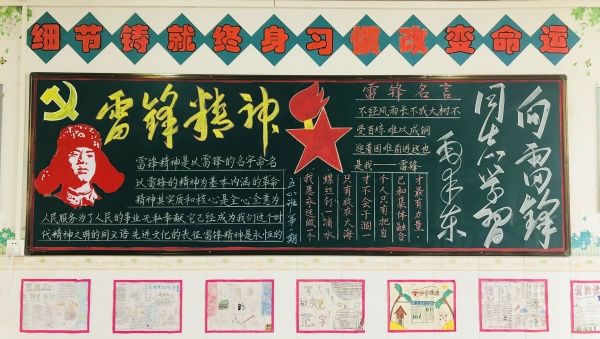 细节铸就终身习惯改变命运
雷锋精神
雷锋精神是以雷锋的名字命名
以雷锋的精神为基本内涵的革命
精神其实质和核心是全心全意为
人民服务为了人民的事业无私奉献它已经成为我们这个时
代精神文明的同义语先进文化的表征雷锋精神是永恒的
班第一期
雷锋名言
不经风雨长不成大树不
受百炼难以成钢
迎着困难前进这也
是我——雷锋
我愿永远做一个
螺丝钉一滴水
只有放在大海
才不会干涸一
个人只有把自
己和集体融合
最有力量。
向雷锋
同志学习
毛泽东